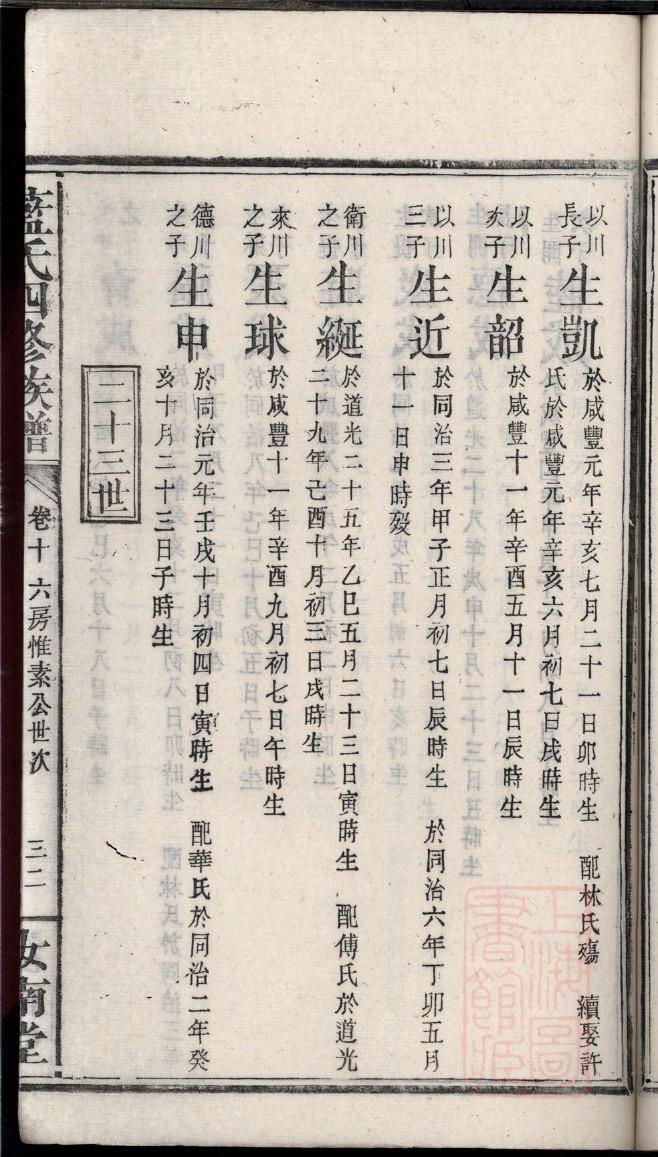 以川
長子
生凱
於咸豐元年辛亥七月二十一日卯時生　配林氏殤　續娶許
氏於咸豐元年辛亥六月初七日戌時生
以川
次子
生韶
於咸豐十一年辛酉五月十一日辰時生
以川
三子
生近
於同治三年甲子正月初七日辰時生　於同治六年丁卯五月
十一日申時歿
衛川
之子
生綖
於道光二十五年乙巳五月二十三日寅時生　配傅氏於道光
二十九年己酉十月初三日戌時生
來川
之子
生球
於咸豐十一年辛酉九月初七日午時生
德川
之子
生申
於同治元年壬戌十月初四日寅時生　配華氏於同治二年癸
亥十月二十三日子時生
二十三世
藍氏四修族譜
卷十　六房惟素公世次
三二
汝南堂
上海圖
書館藏